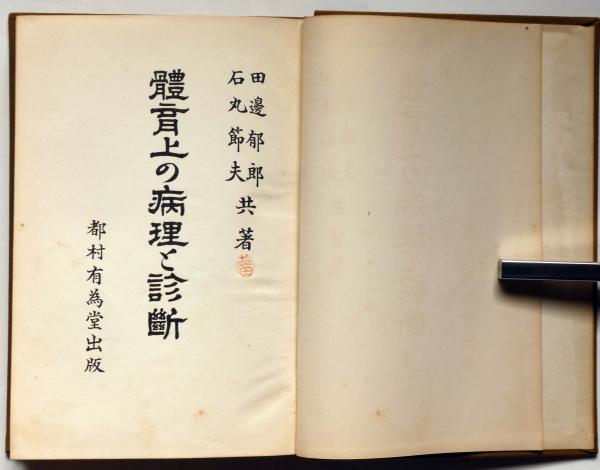 田邊郁郎
石丸節夫
共著
體育上の病理と診斷
都村有為堂出版